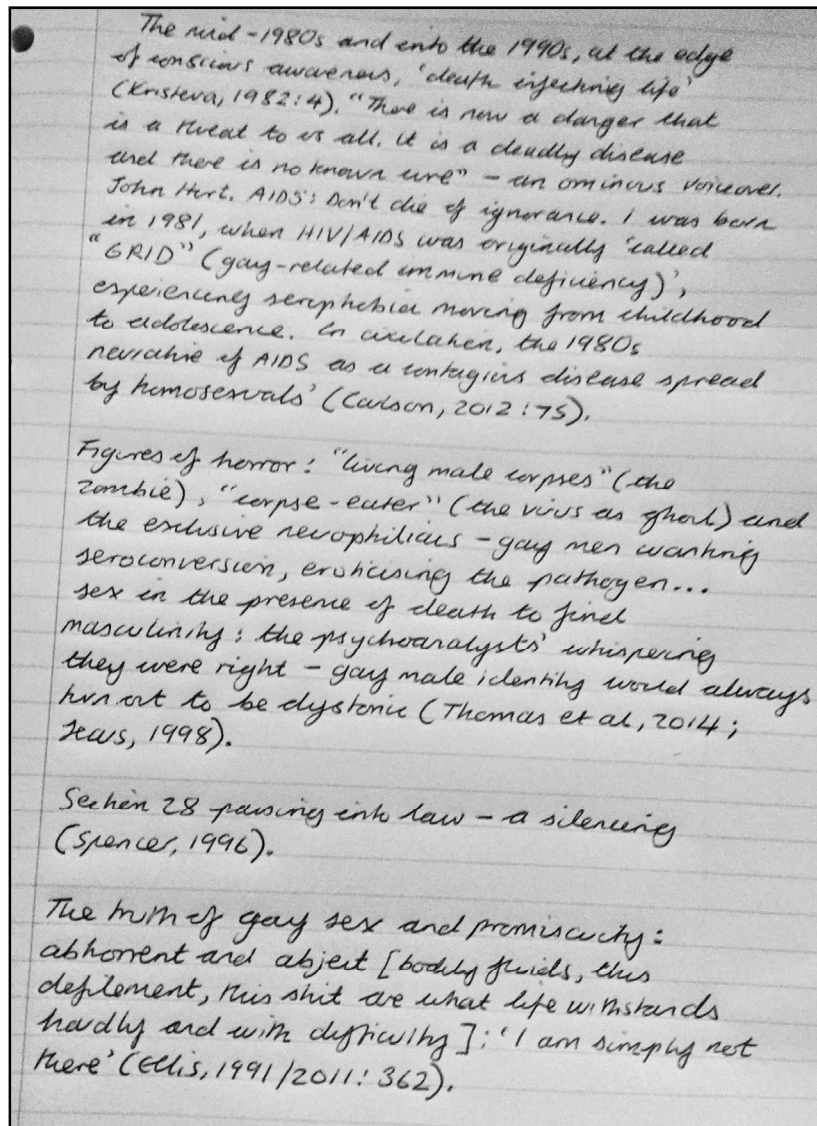 The mid-1980s and into the 1990s, at the edge
of conscious awareness, 'death infecting life'
(Kristeva, 1982:4). "There is now a danger that
is a threat to us all. It is a deadly disease
and there is no known cure" – an ominous voiceover.
John Hurt. AIDS: Don't die of ignorance. I was born
in 1981, when HIV/AIDS was originally 'called
"GRID" (gay-related immune deficiency)',
experiencing serophobia moving from childhood
to adolescence. In circulation, the 1980s
narrative of AIDS as a contagious disease spread
by homosexuals' (Carlson, 2012:75).
Figures of horror: "living male corpses" (the
zombie), "corpse-eater" (the virus as ghoul) and
the exclusive necrophiliacs – gay men wanting
seroconversion, eroticising the pathogen...
sex in the presence of death to find
masculinity: the psychoanalysts' whispering
they were right – gay male identity would always
turn out to be dystonic (Thomas et al, 2014;
1998).
Section 28 passing into law – a silencing
(Spencer, 1996).
The truth of gay sex and promiscuity:
abhorrent and abject [bodily fluids, this
defilement, this shit are what life withstands
hardly and with difficulty]: 'I am simply not
there' (Ellis, 1991/2011: 362).